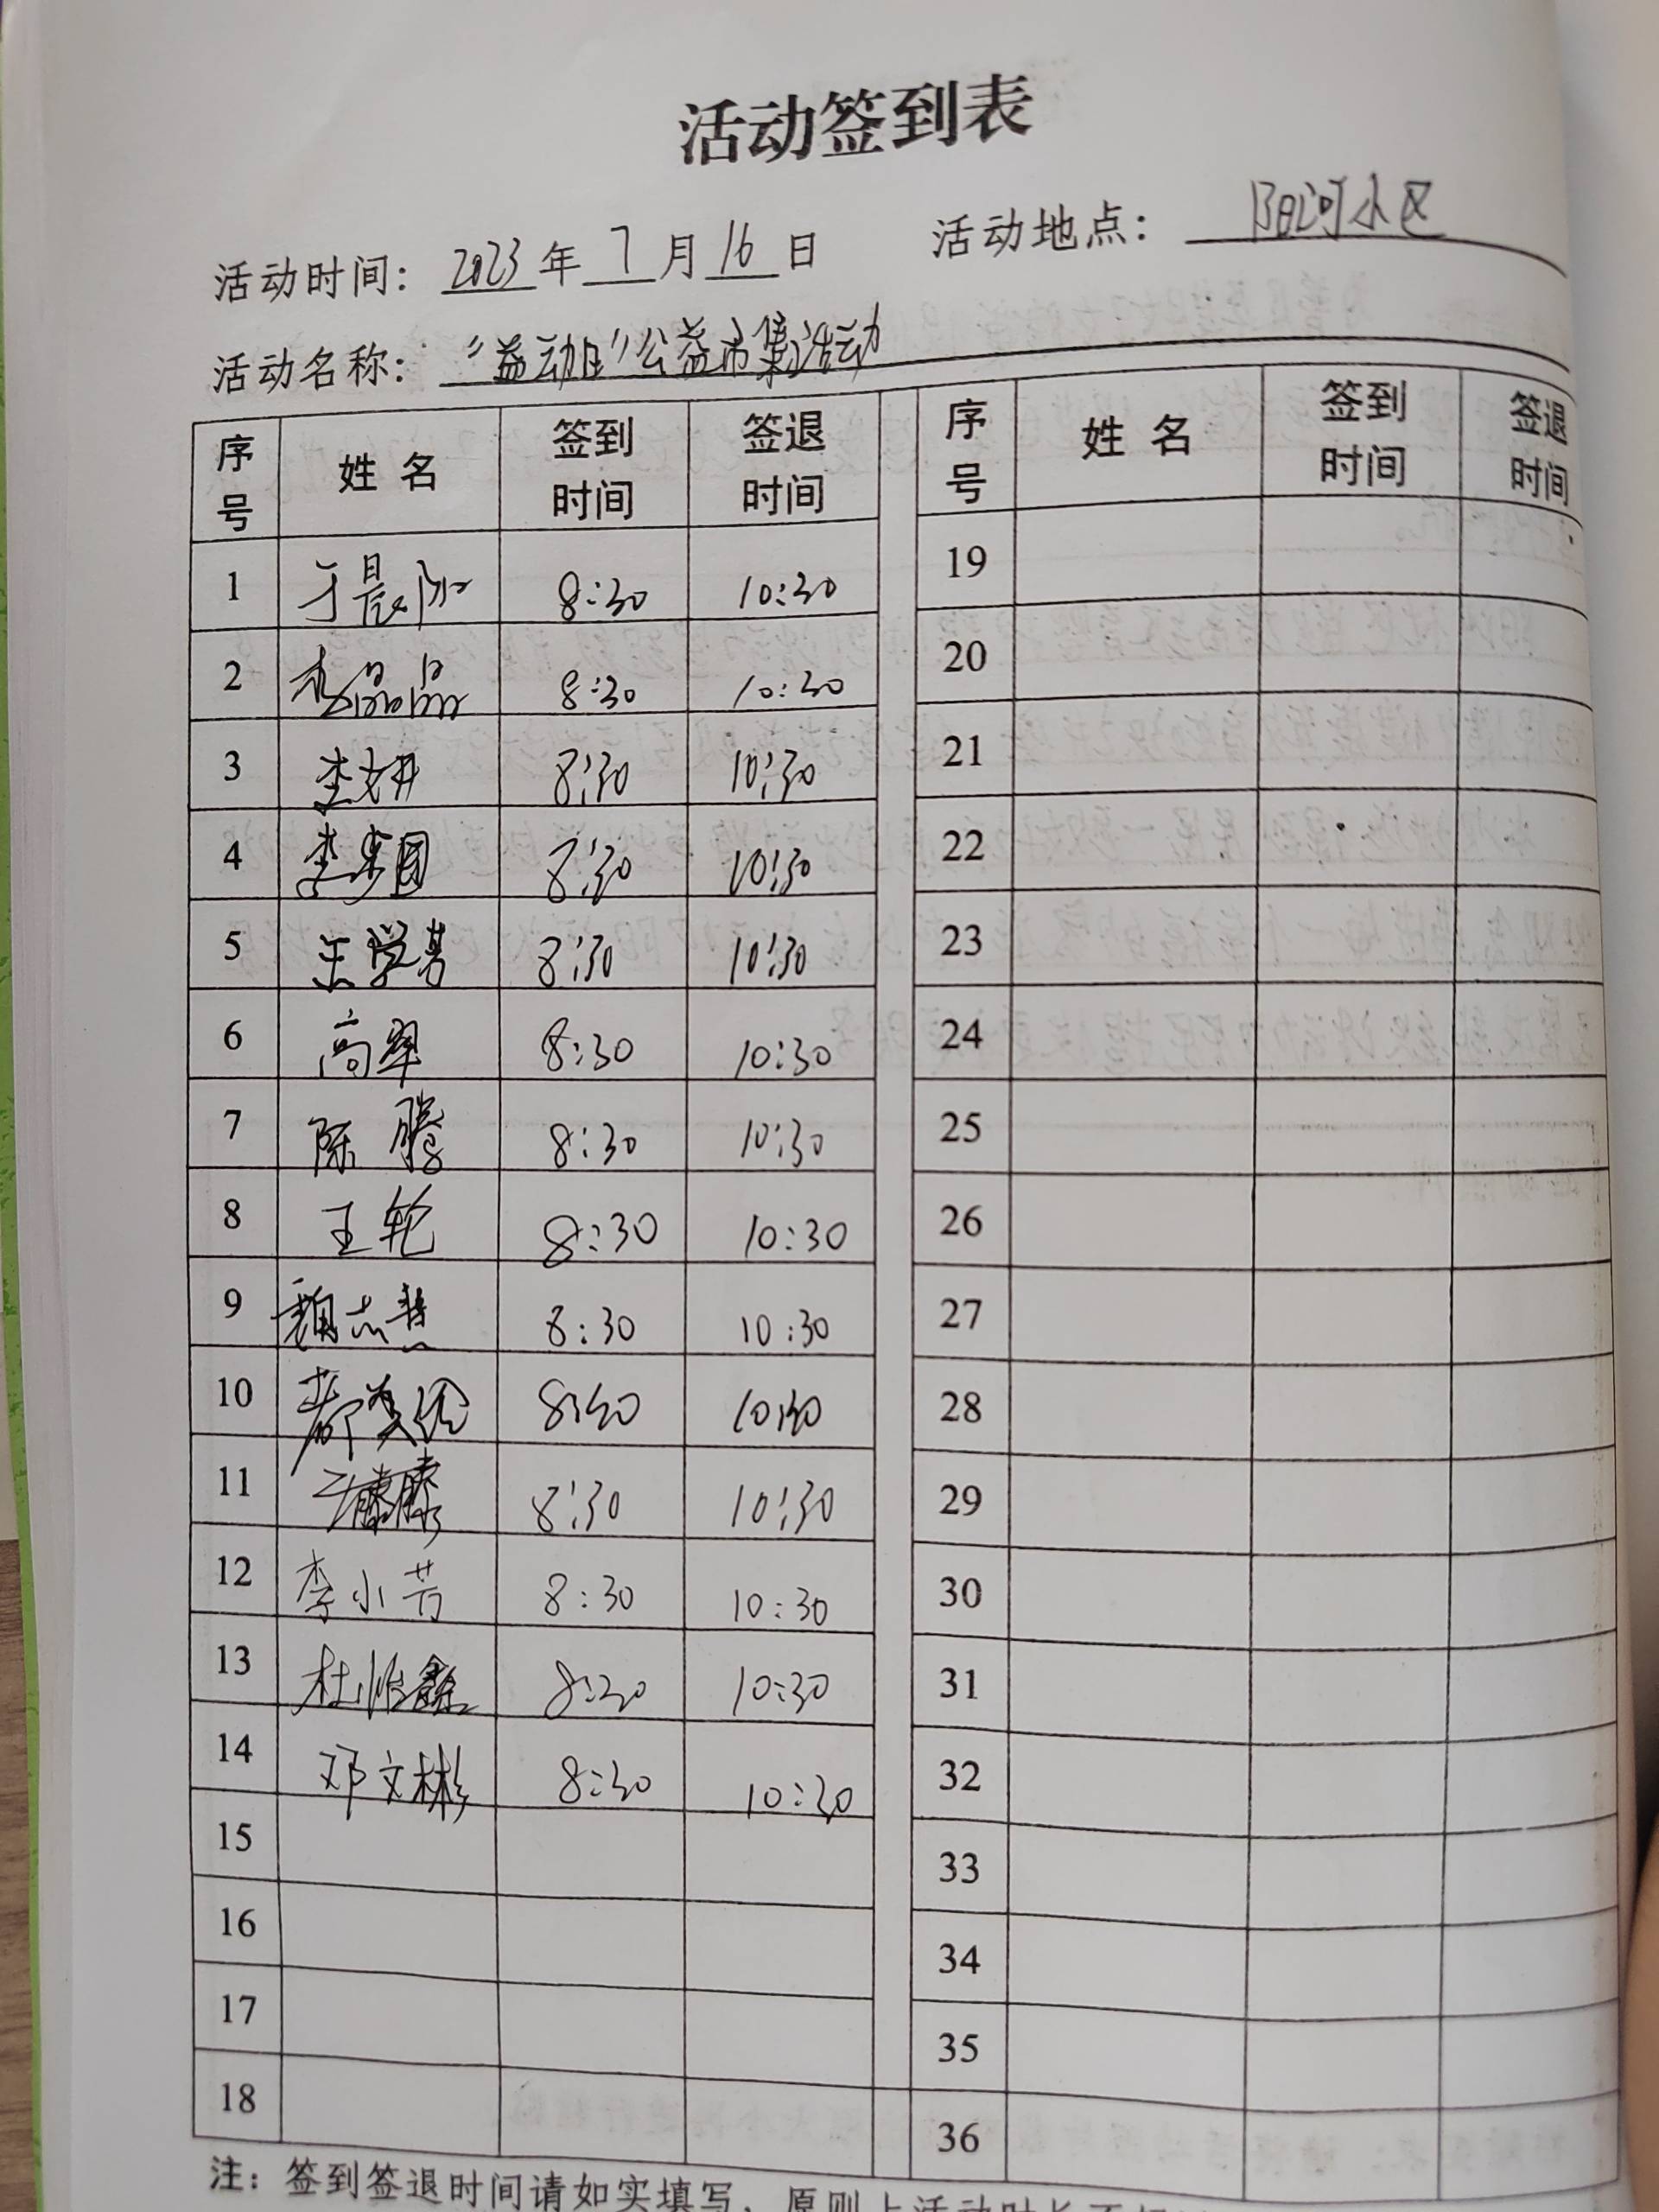 活动签到表
活动时间: 2023 年 7 月 16 日 活动地点: 阳河小区
活动名称: "益动日"公益市集活动
序号 姓名 签到时间 签退时间 序号 姓名 签到时间 签退时间
1 于晨 8:30 10:30 19
2 李晶晶 8:30 10:30 20
3 李文丹 8:30 10:30 21
4 李 8:30 10:30 22
5 王学芳 8:30 10:30 23
6 高翠 8:30 10:30 24
7 陈腾 8:30 10:30 25
8 王轮 8:30 10:30 26
9 魏志慧 8:30 10:30 27
10 8:30 10:30 28
11 王藤藤 8:30 10:30 29
12 李小芳 8:30 10:30 30
13 杜 8:30 10:30 31
14 邓文彬 8:30 10:30 32
15 33
16 34
17 35
18 36
注: 签到签退时间请如实填写,原则上活动时长不